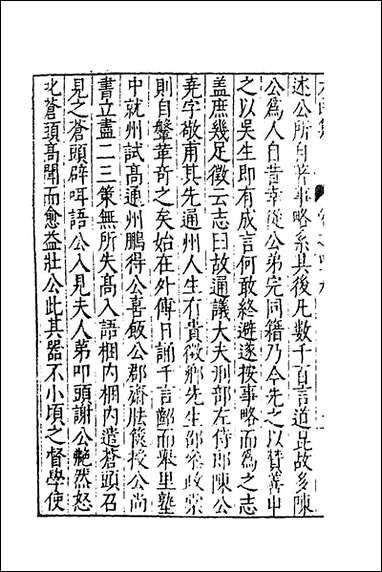 述公所自著事略系其後凡數千百言道昆故多陳
公爲人自昔幸從公弟完同籍乃今先之以贊善中
之以吳生即有成言何敢終避遂按事略而爲之志
蓋庶幾足徵云志曰故通議大夫刑部左侍郎陳公
堯字敬甫其先通州人生有貴徵鄉先生邵棠政棠
則自革奇之矣始在外傅日誦千言而舉里塾
中就州試高通州鵬得公喜飯公郡齋胠篋授公尚
書立盡二三策無所失高入語梱内梱内遣蒼頭召
見之蒼頭辟咡語公入見夫人弟叩頭謝公艴然怒
叱蒼頭高聞而愈益壯公此其器不小頃之督學使